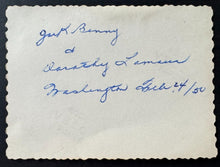 Jack Benny
&
Dorothy Lamour
Washington Feb. 24/50